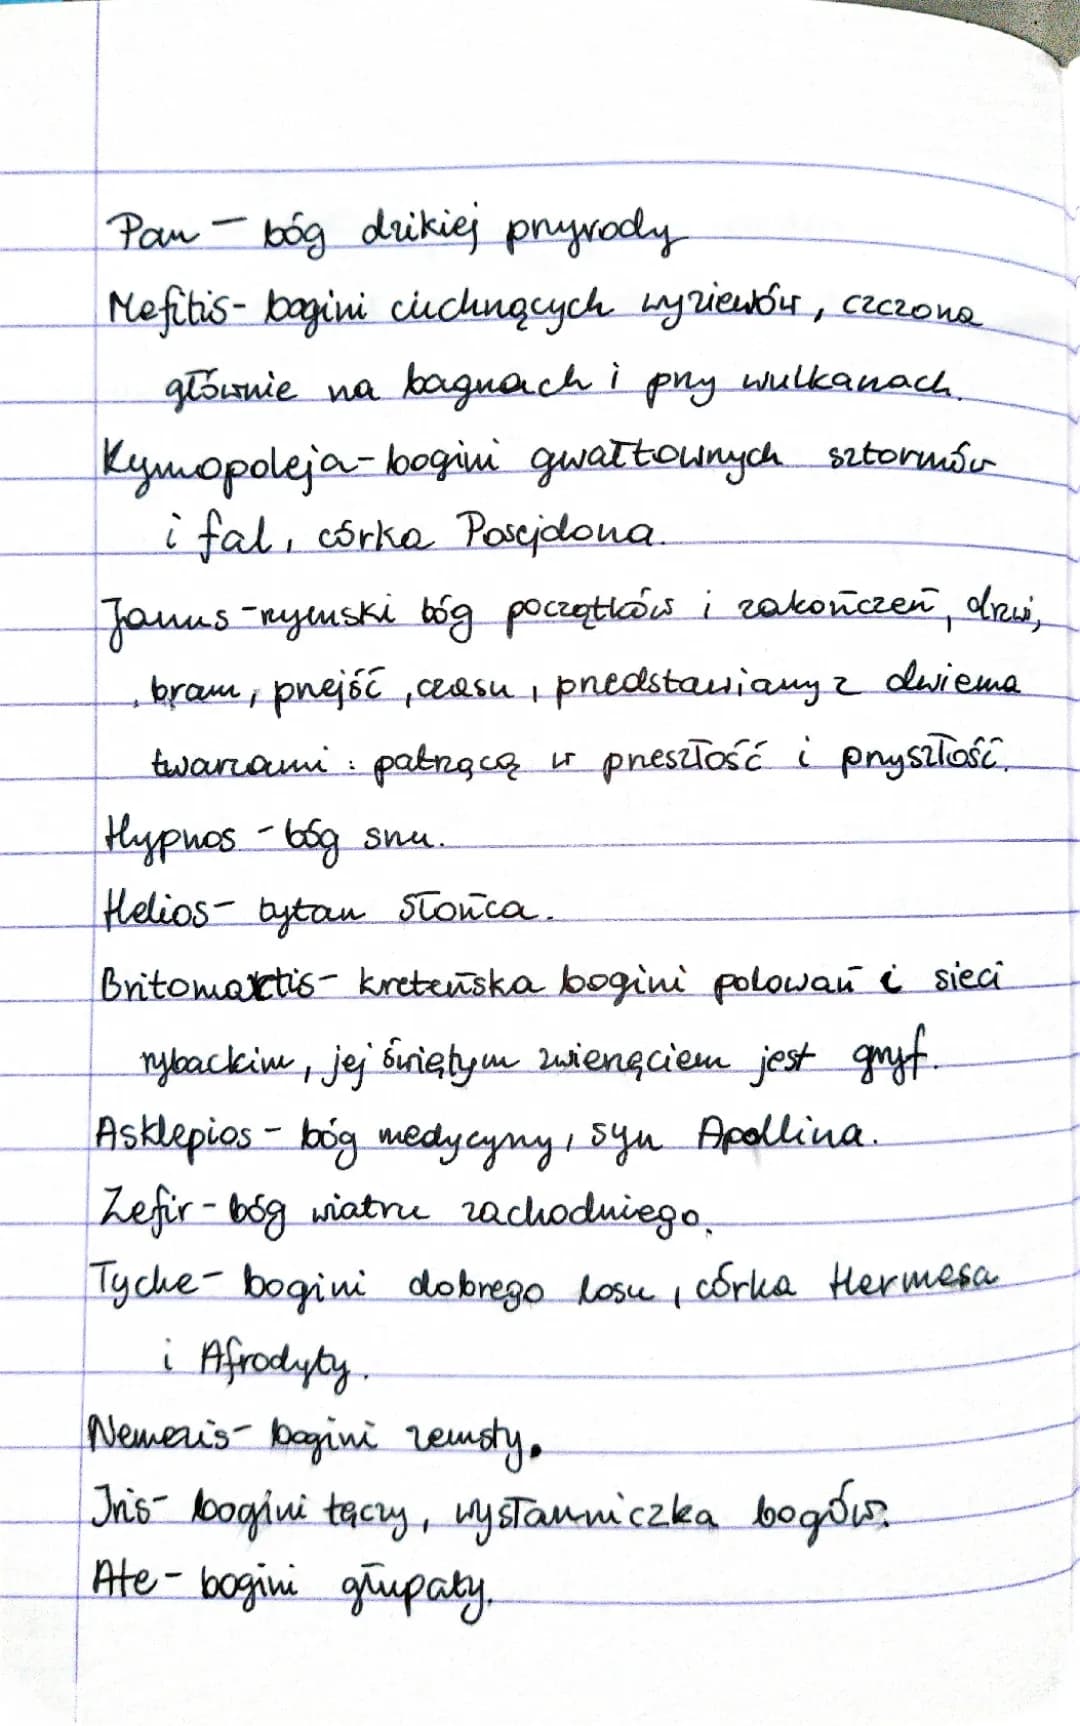 Pan – bóg dzikiej przyrody
Mefitis- bogini cuchnących wyziewów, czczona
głównie na bagnach i przy wulkanach.
Kymopoleja- bogini gwałtownych sztormów
i fal, córka Posejdona.
Janus -rzymski bóg początków i zakończeń, drzwi,
bram, przejść, czasu, przedstawiany z dwiema
twarzami: patrzącą w przeszłość i przyszłość.
Hypnos - bóg snu.
Helios- tytan Słońca.
Britomartis- kreteńska bogini polowań i sieci
rybackim, jej świętym zwierzęciem jest gryf.
Asklepios - bóg medycyny, syn Apollina.
Zefir - bóg wiatru zachodniego.
Tyche- bogini dobrego losu, córka Hermesa
i Afrodyty.
Nemezis- bogini zemsty.
Iris- bogini tęczy, wysłanniczka bogów.
Ate - bogini głupaty.